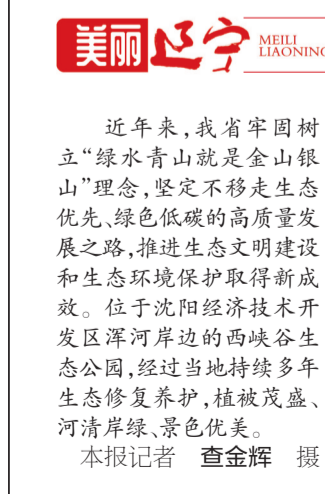 美丽辽宁
MEILI
LIAONING
近年来,我省牢固树
立“绿水青山就是金山银
山”理念,坚定不移走生态
优先、绿色低碳的高质量发
展之路,推进生态文明建设
和生态环境保护取得新成
效。位于沈阳经济技术开
发区浑河岸边的西峡谷生
态公园,经过当地持续多年
生态修复养护,植被茂盛、
河清岸绿、景色优美。
本报记者 查金辉 摄